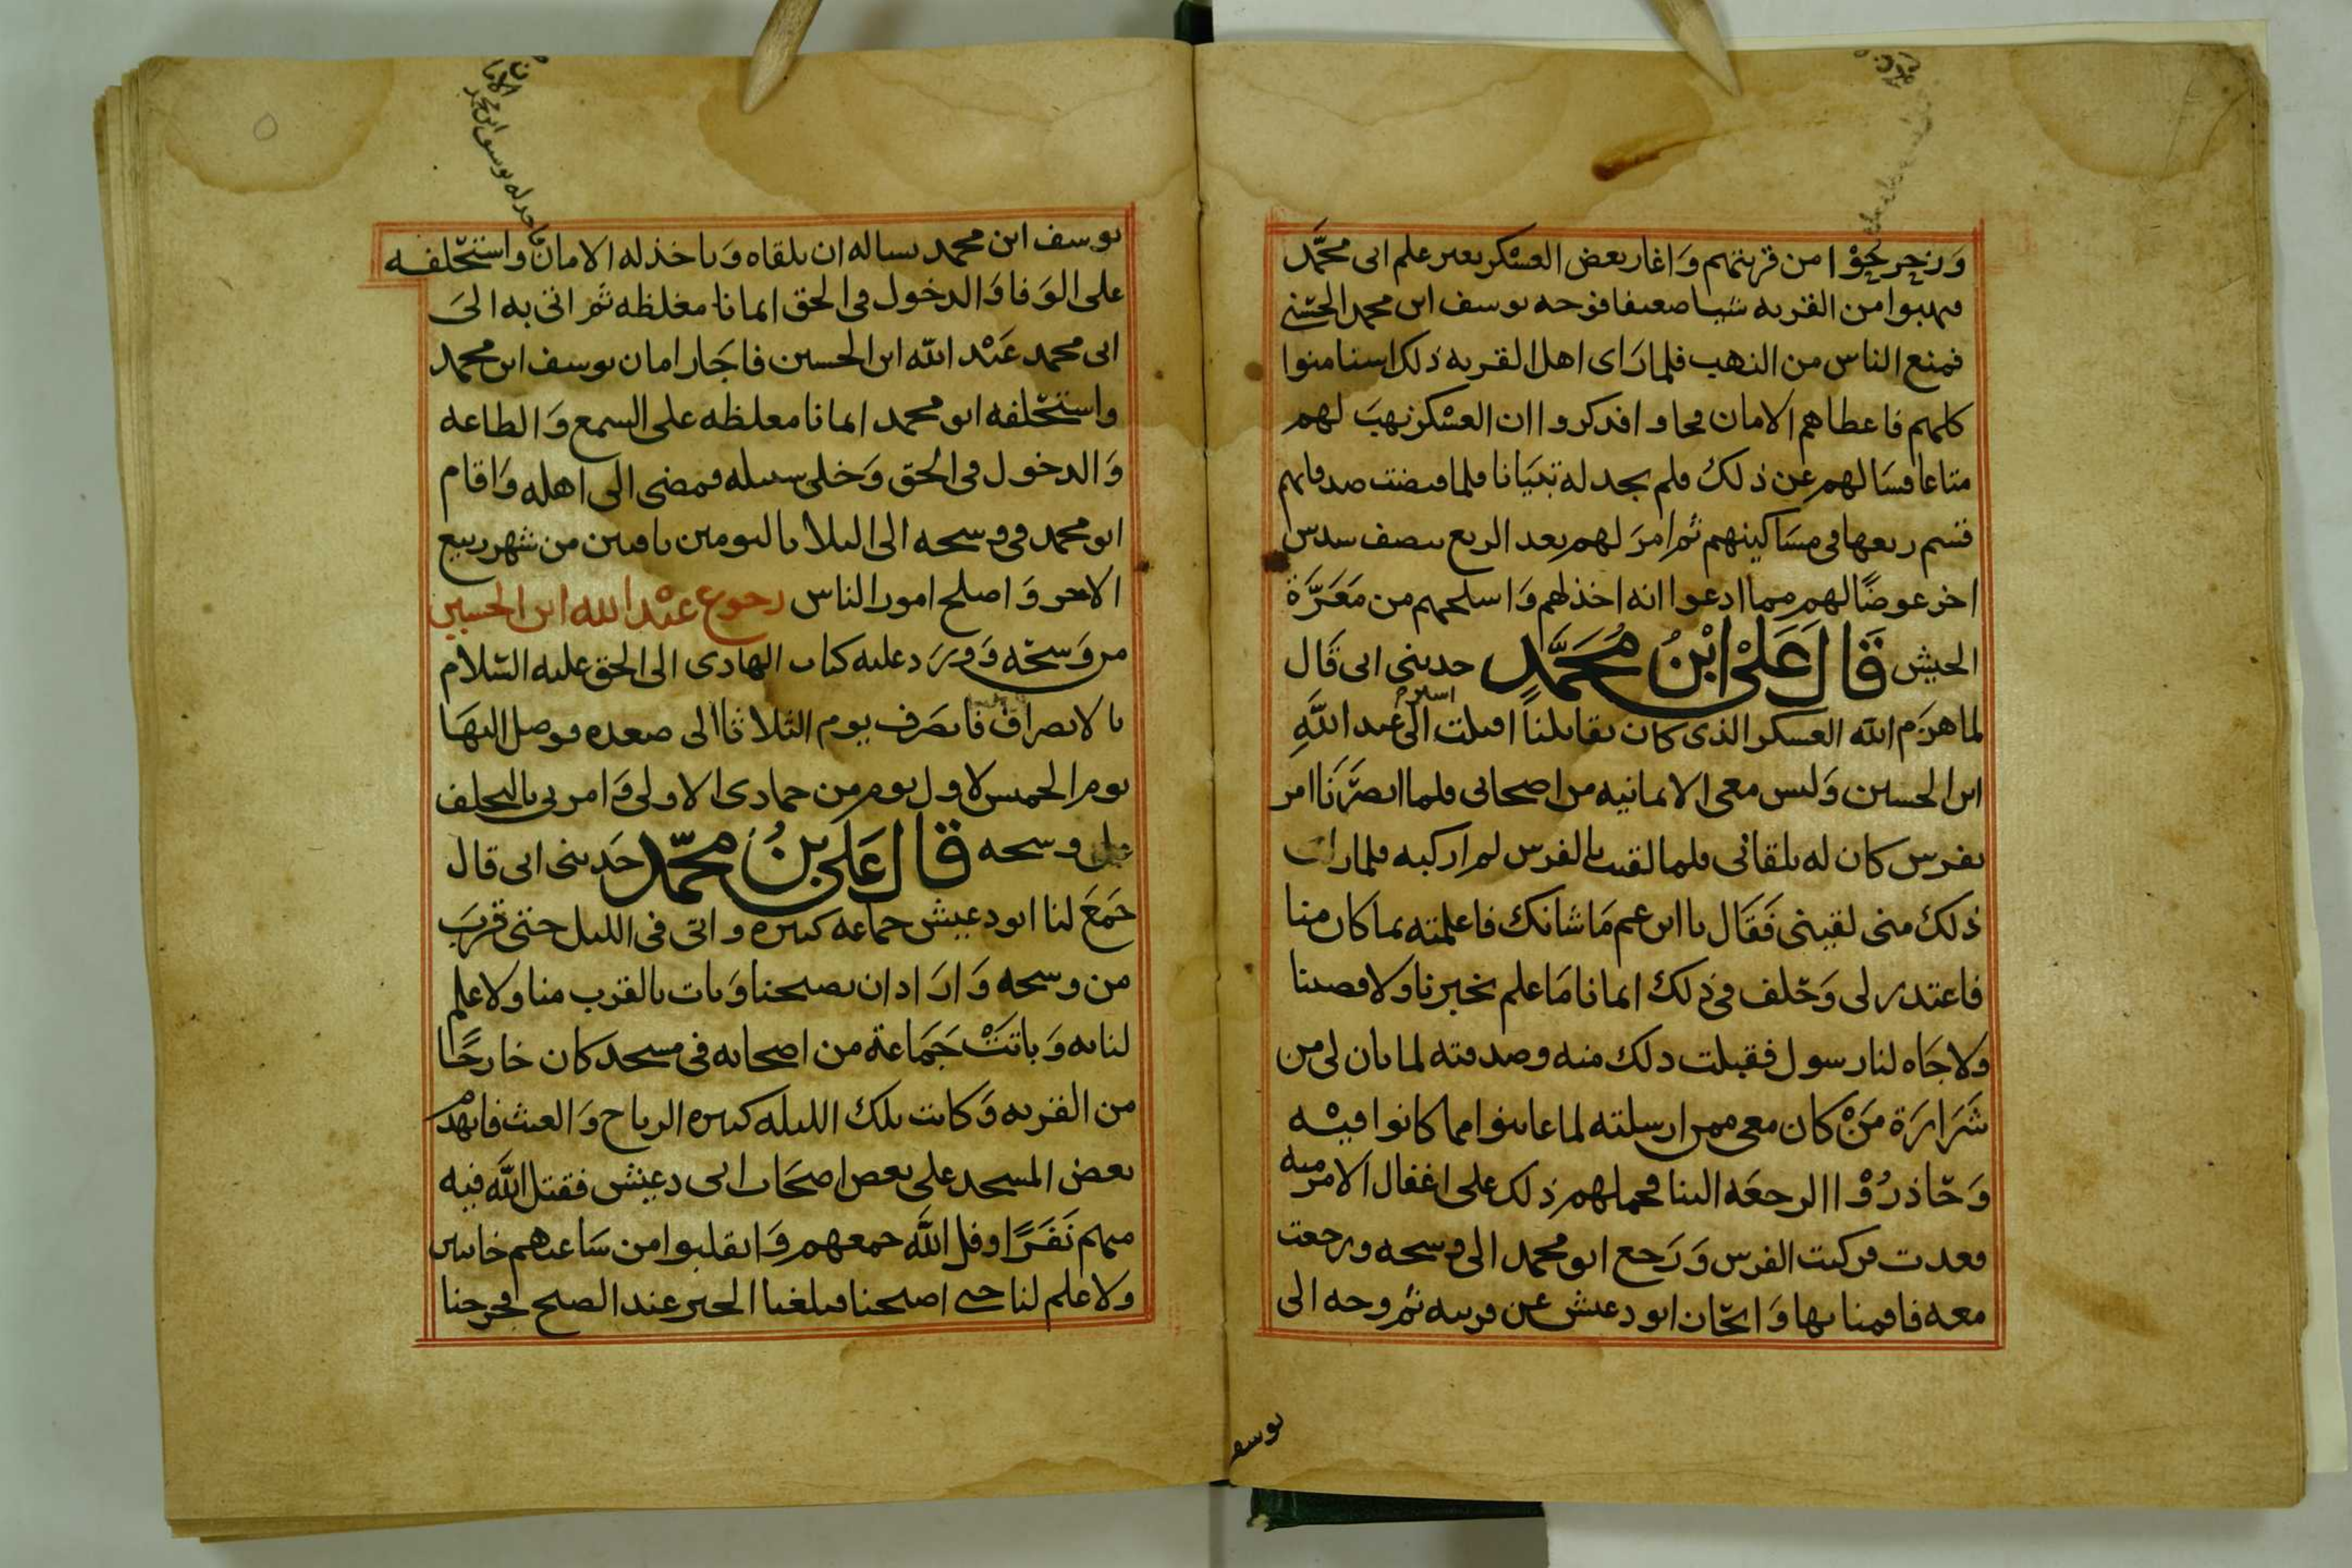 وزحزحوا من قريتهم وَاغار بعض العسكر بغير علم ابى محمَّد
فنهبوا من القريه شيا ضعيفا فوجه يوسف ابن محمد الحسنى
فمنع الناس من النهب فلما رَاى اهل القريه ذلك استامنوا
كلهم فاعطاهم الامان فجاوا فذكروا ان العسكر نهبَ لهم
متاعا فسَالهم عن ذلك فلم يجد له تبيَانا فلما قبضت صدقاتهم
قسم ربعها فى مسَاكينهم ثم امرَ لهم بعد الربع بنصف سدس
اخر عوضًا لهم مما ادعوا انه اخذ لهم وَاسلمهم من مَعَرَّة
الجيش قَالَ عَلىْ ابْنُ مُحَمَّدٍ حدثنى ابى قَال
لما هزَم الله العسكر الذى كان يقاتلنا اقبلت الى عبد اللَّهِ
ابن الحسين وَليس معى الا ثمانيه من اصحابى فلما ابصَرَنَا امر
بفرس كان له يلقانى فلما لقيت بالفرس لم اركبه فلما راى
ذلك منى لقينى فَقَال يا ابن عم مَا شانك فاعلمته بما كان منا
فاعتذر لى وَحَلف فى ذلك ايمانا مَا علم بخبرنا ولا قصدنا
ولا جَاه لنا رسول فقبلت ذلك منه وصدقته لما بان لى من
شَرَارَة مَنْ كان معى ممن ارسلته لما عاينوا مما كانوا فيْه
وَحَاذرُوْا الرجعَه الينا فحملهم ذلك على اغفال الامر فيه
فعدت فركبت الفرس وَرَجع ابو محمد الى وسحه ورجعت
معه فاقمنا بها وَانحَان ابو دعيش عن قريته ثم وجه الى
يوسف
يوسف ابن محمد يساله ان يلقاه وَياخذ له الامان واستحلفه
على الوَفا وَالدخول فى الحق ايمانا مغلظه ثم اتى به الىَ
ابى محمد عَبْد الله ابن الحسين فاجَار امان يوسف ابن محمد
واستحلفه ابو محمد ايمانا مغلظه على السمع وَالطاعه
وَالدخول فى الحق وَخلى سبيله فمضى الى اهله وَاقام
ابو محمد فى وسحه الى ليلا باليومين باقيين من شهر ربيع
الاخر وَاصلح امور الناس رجوع عبْد الله ابن الحسين
من وَسحَه وَوَرَد عليه كتاب الهادى الى الحق عليه السَّلام
بالانصراف فانصَرف يوم الثلاثا الى صعده فوصل اليهَا
يوم الخميس لاول يوم من جمادى الاولى وَامر بى بالتخلف
على وسحه قَالَ عَلى بنُ محمَّد حَدثنى ابى قال
جَمَعَ لنا ابو دعيش جماعه كبيره واتى فى الليل حتى قربَ
من وسحه وَارَاد ان يصبحنا وَبات بالقرب منا ولا علم
لنا به وَباتَتْ جَمَاعة من اصحابه فى مسجد كان خارجًا
من القريه وَكانت تلك الليله كثيره الرياح وَالغيث فانهدم
بعض المسجد على بعض اصحَاب ابى دعيش فقتل اللَّه فيه
منهم نَفَرًا وفل اللَّه جمعهم وَانقلبوا من سَاعتهم خايبين
ولا علم لنا حتى اصبحنا فبلغنا الخبر عند الصبح فخرجنا